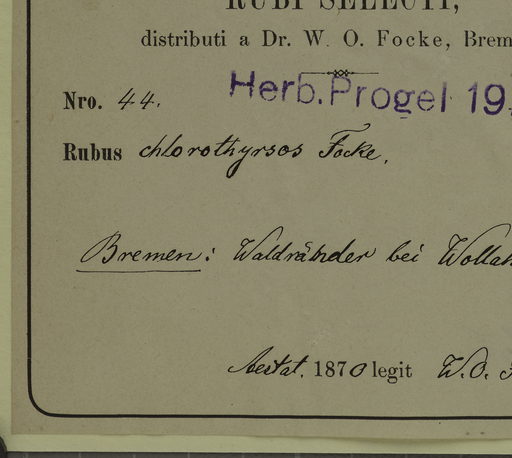 RUBI SELECTI,
distributi a Dr. W. O. Focke, Brem
Herb. Progel 19
Nro. 44.
Rubus chlorothyrsos Focke.
Bremen: Waldränder bei Wollah
Aestat. 1870 legit W. O.